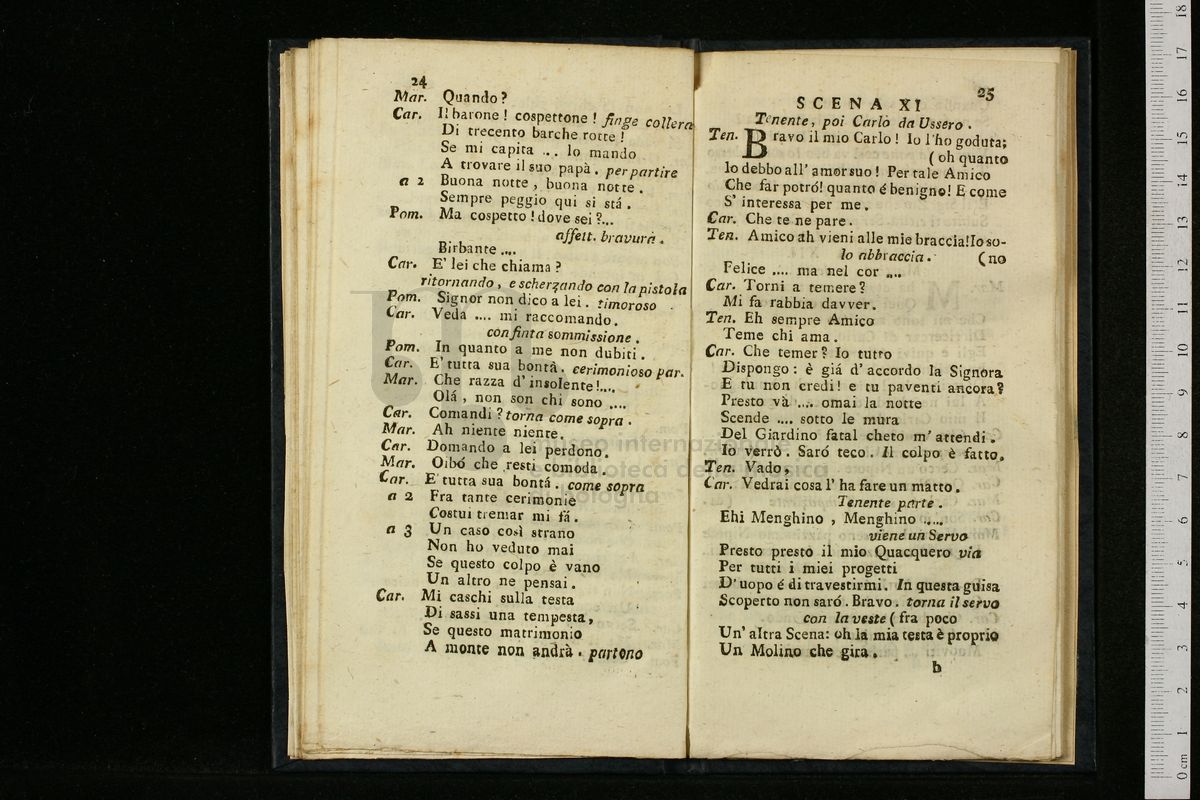 24
Mar. Quando?
Car. Il barone! cospettone! finge collera
Di trecento barche rotte!
Se mi capita ... lo mando
A trovare il suo papà. per partire
a 2 Buona notte, buona notte.
Sempre peggio qui si stá.
Pom. Ma cospetto! dove sei?...
affett. bravura.
Birbante ....
Car. E' lei che chiama?
ritornando, e scherzando con la pistola
Pom. Signor non dico a lei. timoroso
Car. Veda .... mi raccomando.
con finta sommissione.
Pom. In quanto a me non dubiti.
Car. E' tutta sua bontá. cerimonioso par.
Mar. Che razza d'insolente!....
Olá, non son chi sono ....
Car. Comandi? torna come sopra.
Mar. Ah niente niente.
Car. Domando a lei perdono.
Mar. Oibó che resti comoda.
Car. E' tutta sua bontá. come sopra
a 2 Fra tante cerimonie
Costui tremar mi fá.
a 3 Un caso così strano
Non ho veduto mai
Se questo colpo è vano
Un altro ne pensai.
Car. Mi caschi sulla testa
Di sassi una tempesta,
Se questo matrimonio
A monte non andrà. partono
25
SCENA XI
Tenente, poi Carlo da Ussero.
Ten. Bravo il mio Carlo! Io l'ho goduta;
(oh quanto
Io debbo all' amor suo! Per tale Amico
Che far potró! quanto é benigno! E come
S' interessa per me.
Car. Che te ne pare.
Ten. Amico ah vieni alle mie braccia! Io so-
lo abbraccia. (no
Felice .... ma nel cor ....
Car. Torni a temere?
Mi fa rabbia davver.
Ten. Eh sempre Amico
Teme chi ama.
Car. Che temer? Io tutto
Dispongo: è giá d' accordo la Signora
E tu non credi! e tu paventi ancora?
Presto và .... omai la notte
Scende .... sotto le mura
Del Giardino fatal cheto m' attendi.
Io verrò. Saró teco. Il colpo è fatto.
Ten. Vado,
Car. Vedrai cosa l' ha fare un matto.
Tenente parte.
Ehi Menghino, Menghino .....
viene un Servo
Presto presto il mio Quacquero via
Per tutti i miei progetti
D'uopo é di travestirmi. In questa guisa
Scoperto non saró. Bravo. torna il servo
con la veste (fra poco
Un' altra Scena: oh la mia testa è proprio
Un Molino che gira.
b
museo internazionale
e biblioteca della musica
bologna
0 cm 1 2 3 4 5 6 7 8 9 10 11 12 13 14 15 16 17 18